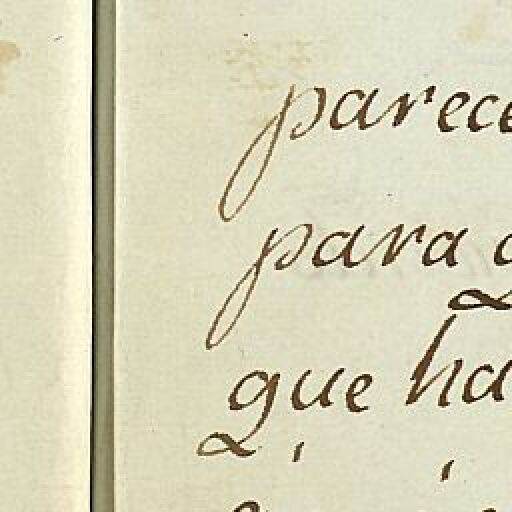 parece
para
que ha